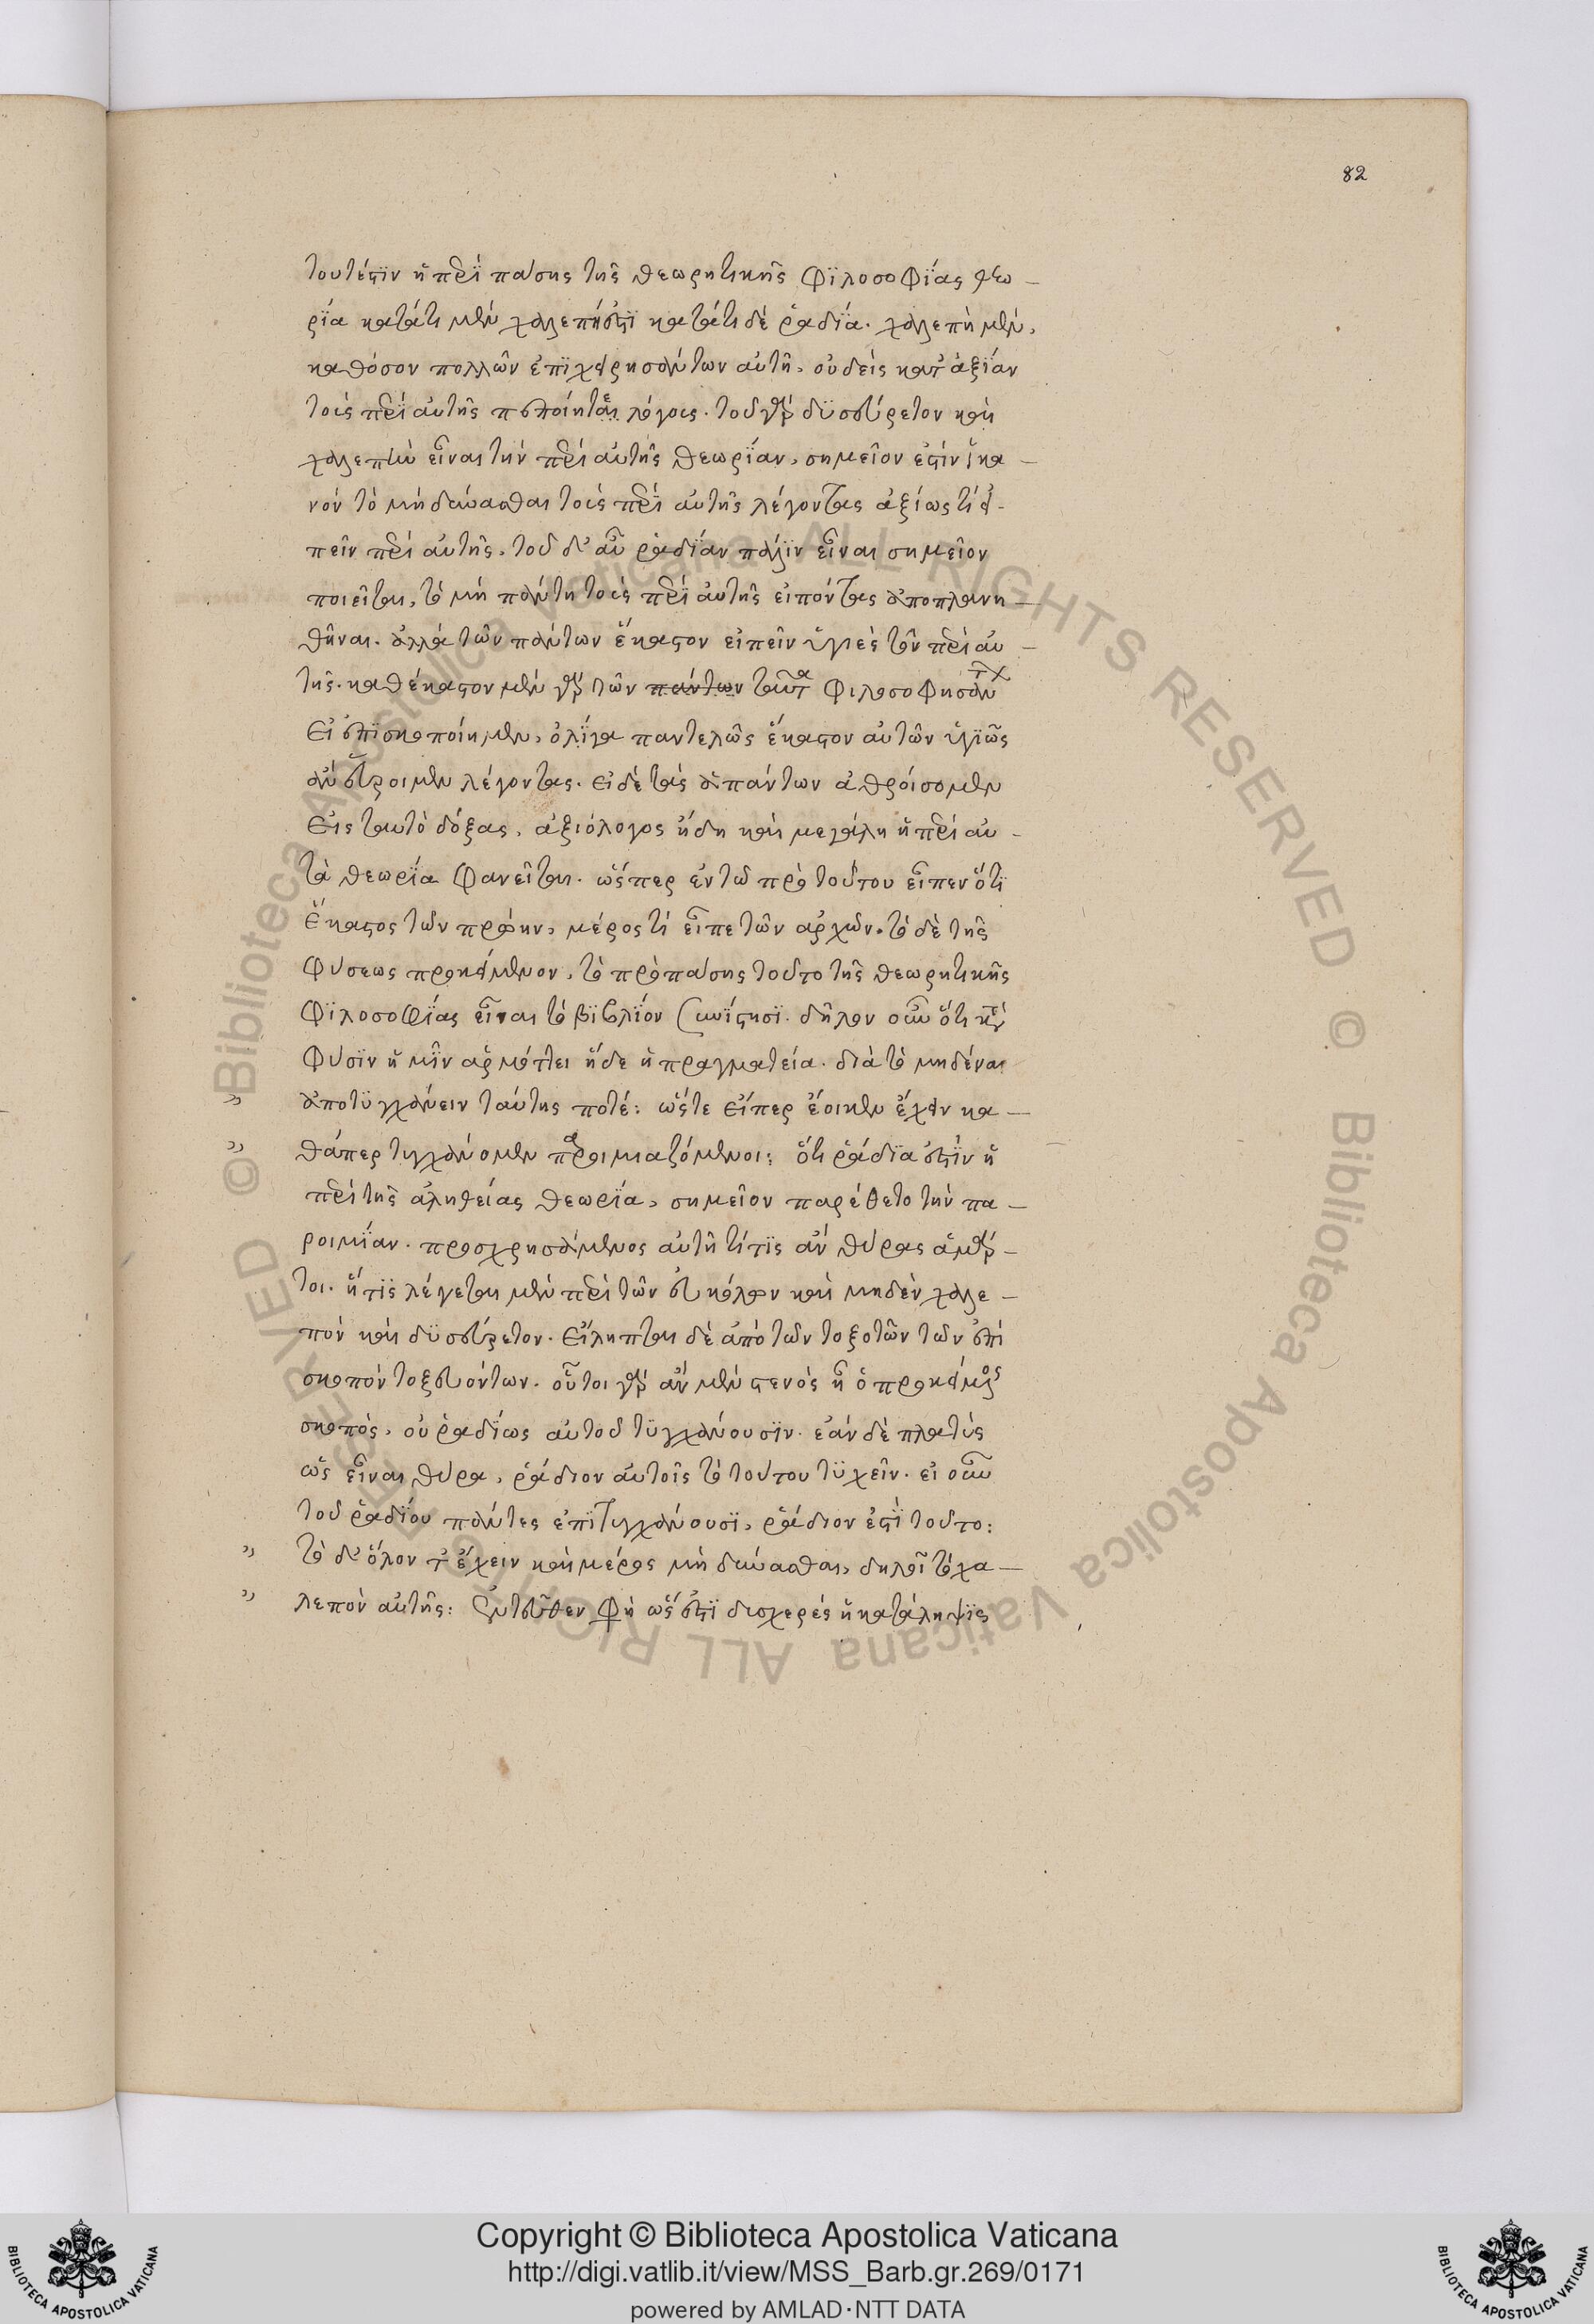 82
τουτέστιν ἡ περὶ πάσης τῆς θεωρητικῆς φιλοσοφίας θεω-
ρία κατά τι μὲν χαλεπή ἐστι κατά τι δὲ ῥαδία. χαλεπὴ μὲν,
καθόσον πολλῶν ἐπιχειρησάντων αὐτῇ, οὐδεὶς κατ' ἀξίαν
τοὺς περὶ αὐτῆς πεποίηται λόγους. τοῦ γὰρ δυσεύρετον καὶ
χαλεπὴν εἶναι τὴν περὶ αὐτῆς θεωρίαν, σημεῖον ἐστὶν ἱκα-
νὸν τὸ μὴ δύνασθαι τοὺς περὶ αὐτῆς λέγοντας ἀξίως τι εἰ-
πεῖν περὶ αὐτῆς. τοῦ δ' αὖ ῥαδίαν πάλιν εἶναι σημεῖον
ποιεῖται, τὸ μὴ πάντη τοὺς περὶ αὐτῆς εἰπόντας ἀποπλανη-
θῆναι. ἀλλὰ τῶν πάντων ἕκαστον εἰπεῖν ὑγιές τι τῶν περὶ αὐ-
τῆς. καθ' ἕκαστον μὲν γὰρ τῶν πάντων ταῦτα φιλοσοφησάντων
εἰ ἐπισκοποίημεν, ὀλίγα παντελῶς ἕκαστον αὐτῶν ὑγιῶς
ἂν εὕροιμεν λέγοντας. εἰ δὲ τὰς ἁπάντων ἀθροίσομεν
εἰς ταυτὸ δόξας, ἀξιόλογος ἤδη καὶ μεγάλη ἡ περὶ αὐ-
τὰ θεωρία φανεῖται. ὥσπερ ἐν τῷ πρὸ τούτου εἶπεν ὅτι
ἕκαστος τῶν πρώην, μέρος τι εἶπε τῶν ἀρχῶν. τὸ δὲ τῆς
φύσεως προκείμενον, τὸ πρὸ πάσης τοῦτο τῆς θεωρητικῆς
φιλοσοφίας εἶναι τὸ βιβλίον συνίστησι. δῆλον οὖν ὅτι κατὰ
φύσιν ἡμῖν ἁρμόττει ἥδε ἡ πραγματεία. διὰ τὸ μηδένα
ἀποτυγχάνειν ταύτης ποτέ: ὥστε εἴπερ ἔοικεν ἔχειν κα-
θάπερ τυγχάνομεν παροιμιαζόμενοι: ὅτι ῥαδία ἐστὶν ἡ
περὶ τῆς ἀληθείας θεωρία, σημεῖον παρέθετο τὴν πα-
ροιμίαν. προσχρησάμενος αὐτῇ τὶ τίς ἂν θύρας ἁμάρ-
τοι. ἥτις λέγεται μὲν περὶ τῶν εὐκόλων καὶ μηδὲν χαλε-
πὸν καὶ δυσεύρετον. εἴληπται δὲ ἀπὸ τῶν τοξοτῶν τῶν ἐπὶ
σκοπὸν τοξευόντων. οὗτοι γὰρ ἂν μὲν στενὸς ᾖ ὁ προκείμενος
σκοπὸς, οὐ ῥαδίως αὐτοῦ τυγχάνουσιν. ἐὰν δὲ πλατὺς
ὡς εἶναι θύρα, ῥάδιον αὐτοῖς τὸ τούτου τυχεῖν. εἰ οὖν
τοῦ ῥαδίου πάντες ἐπιτυγχάνουσι, ῥάδιον ἐστὶ τοῦτο:
τὸ δ' ὅλον τ' ἔχειν καὶ μέρος μὴ δύνασθαι, δηλοῖ τὸ χα-
λεπὸν αὐτῆς: ἐντεῦθεν φη ὡς ἐστὶ δυσχερὲς ἡ κατάληψις